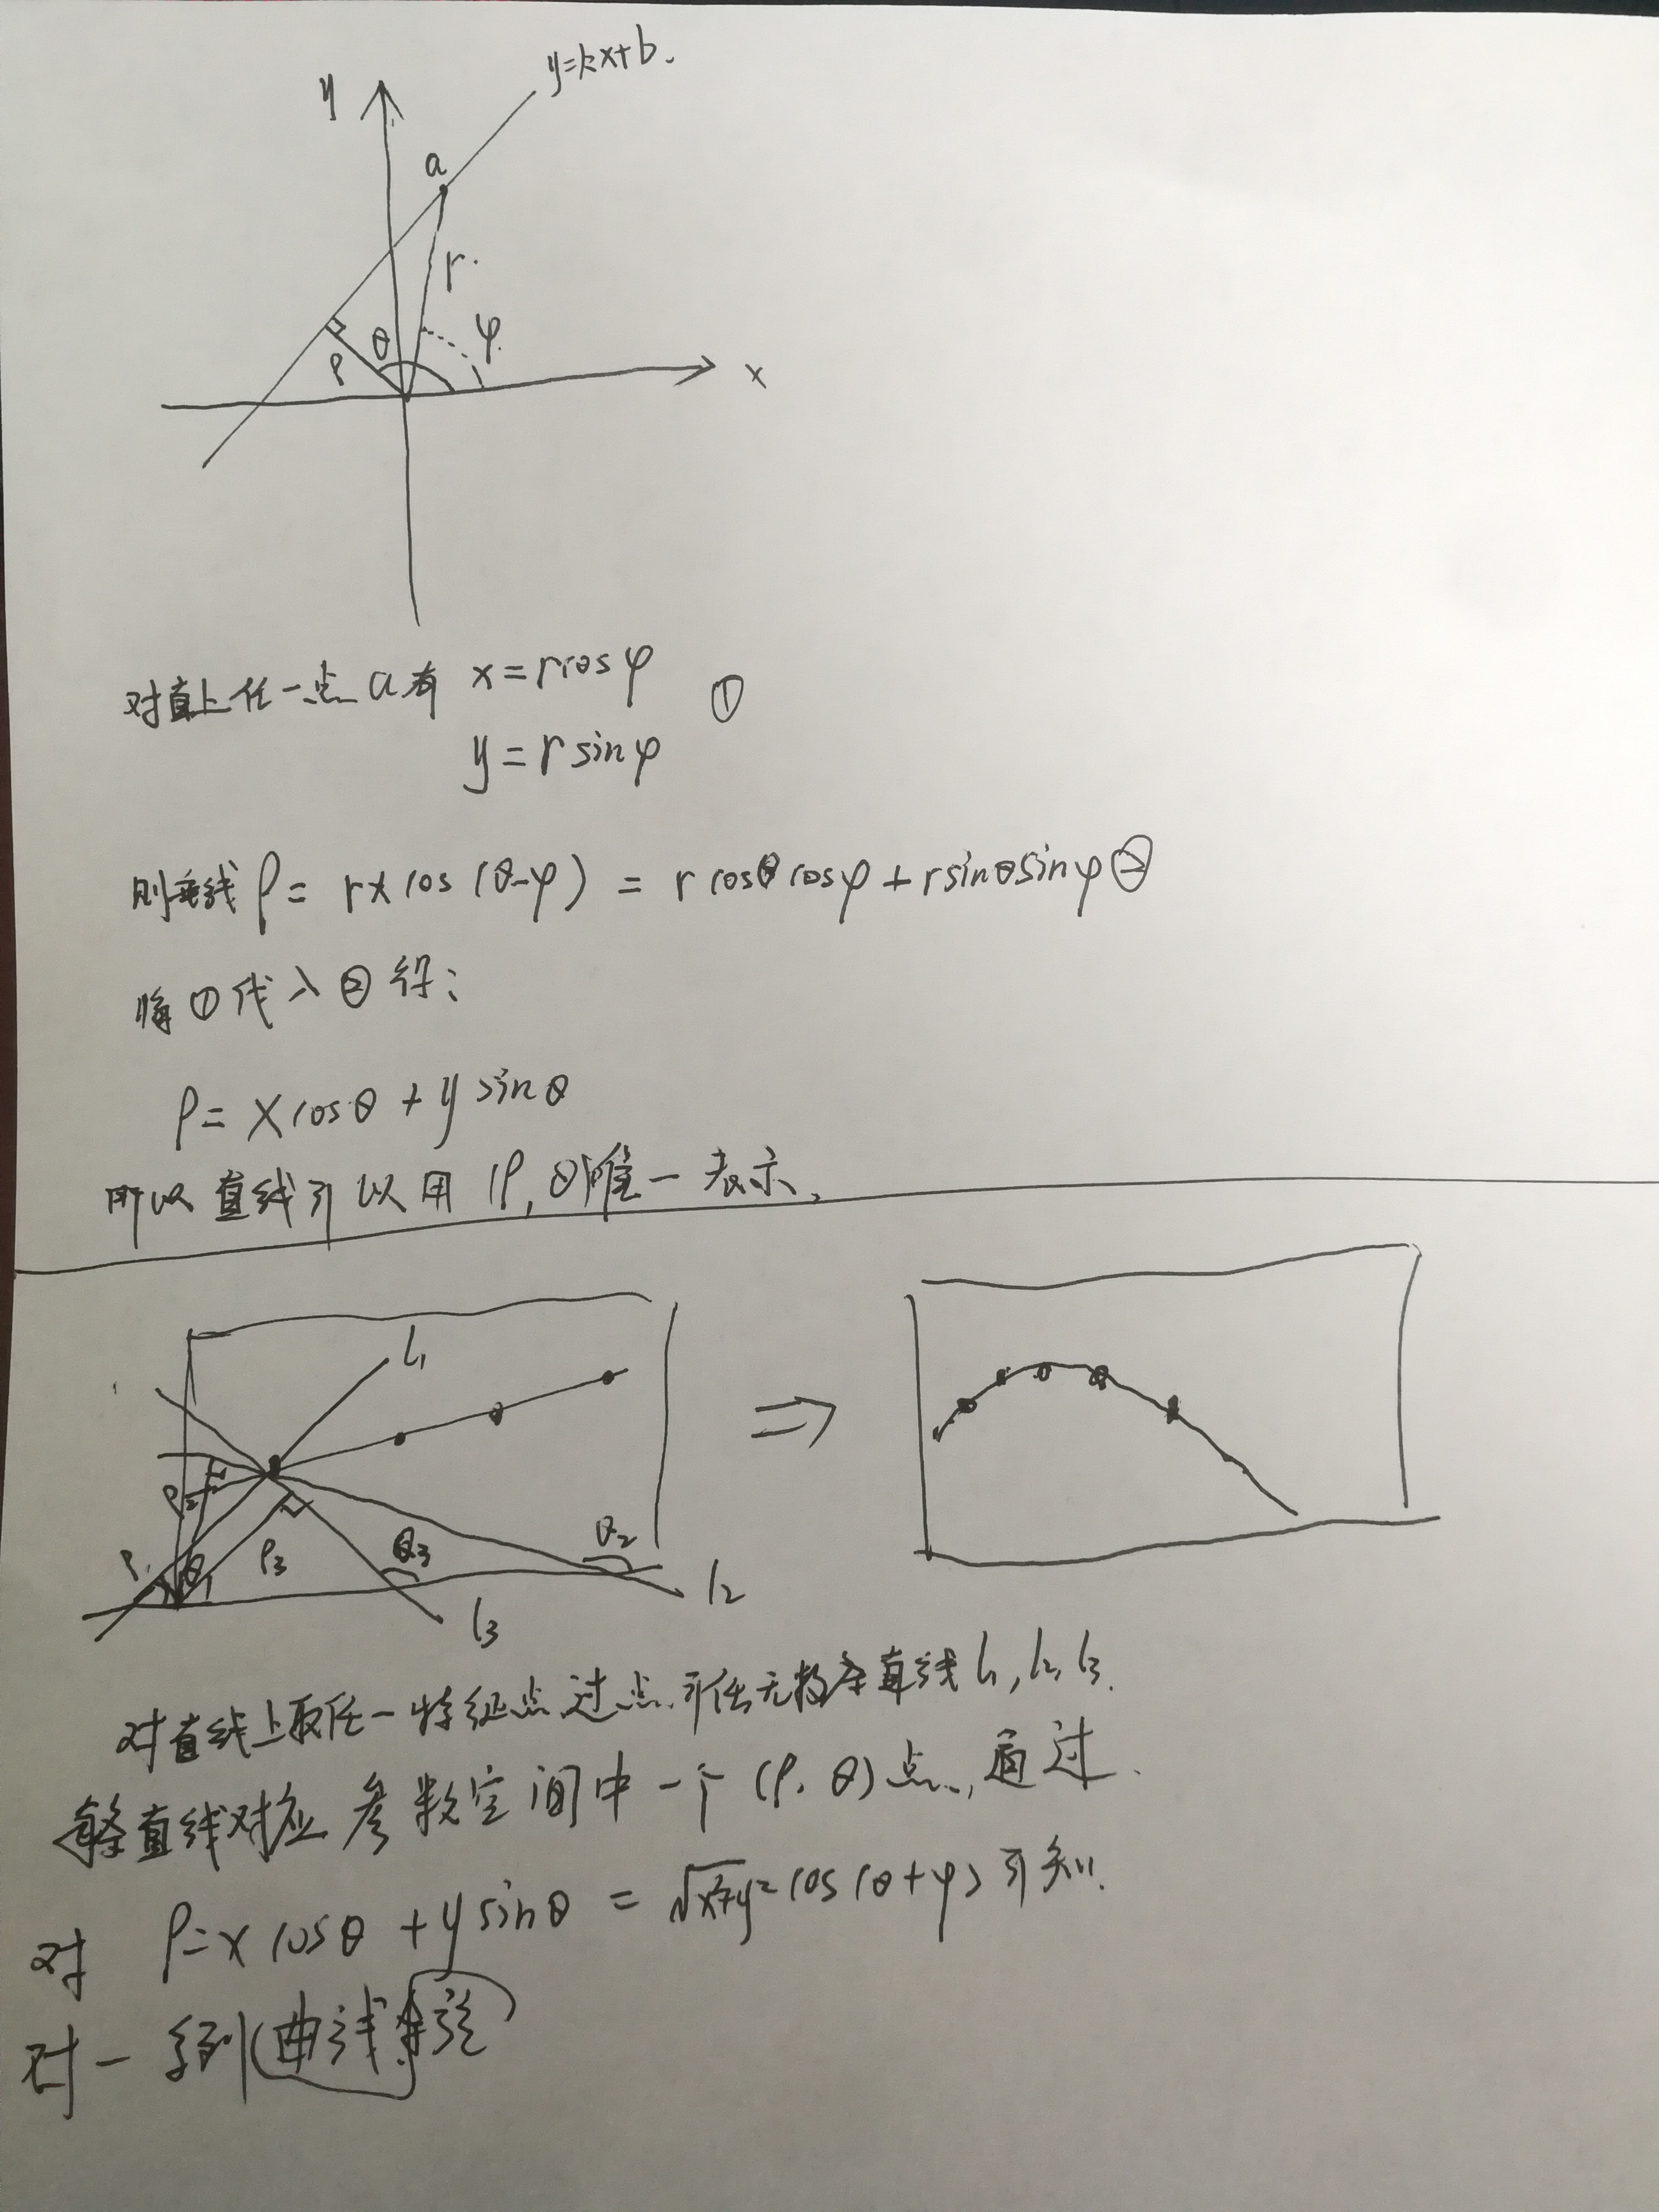 y=kx+b.
y
a
r.
θ
φ.
ρ
x
对直上任一点a有 x=rcosφ ①
y=rsinφ
则垂线ρ= r×cos(θ-φ) = rcosθcosφ+rsinθsinφ②
将①代入②得:
ρ=xcosθ+ysinθ
所以直线可以用(ρ,θ)唯一表示、
l₁
⇒
ρ₂
ρ₁
θ₁
ρ₃
θ₃
θ₂
l₂
l₃
对直线上取任一特征点,过点可任无数条直线l₁,l₂,l₃.
每条直线对应参数空间中一个(ρ,θ)点,通过
对 ρ=xcosθ+ysinθ=√x²+y² cos(θ+φ)可知.
对一系列(曲线